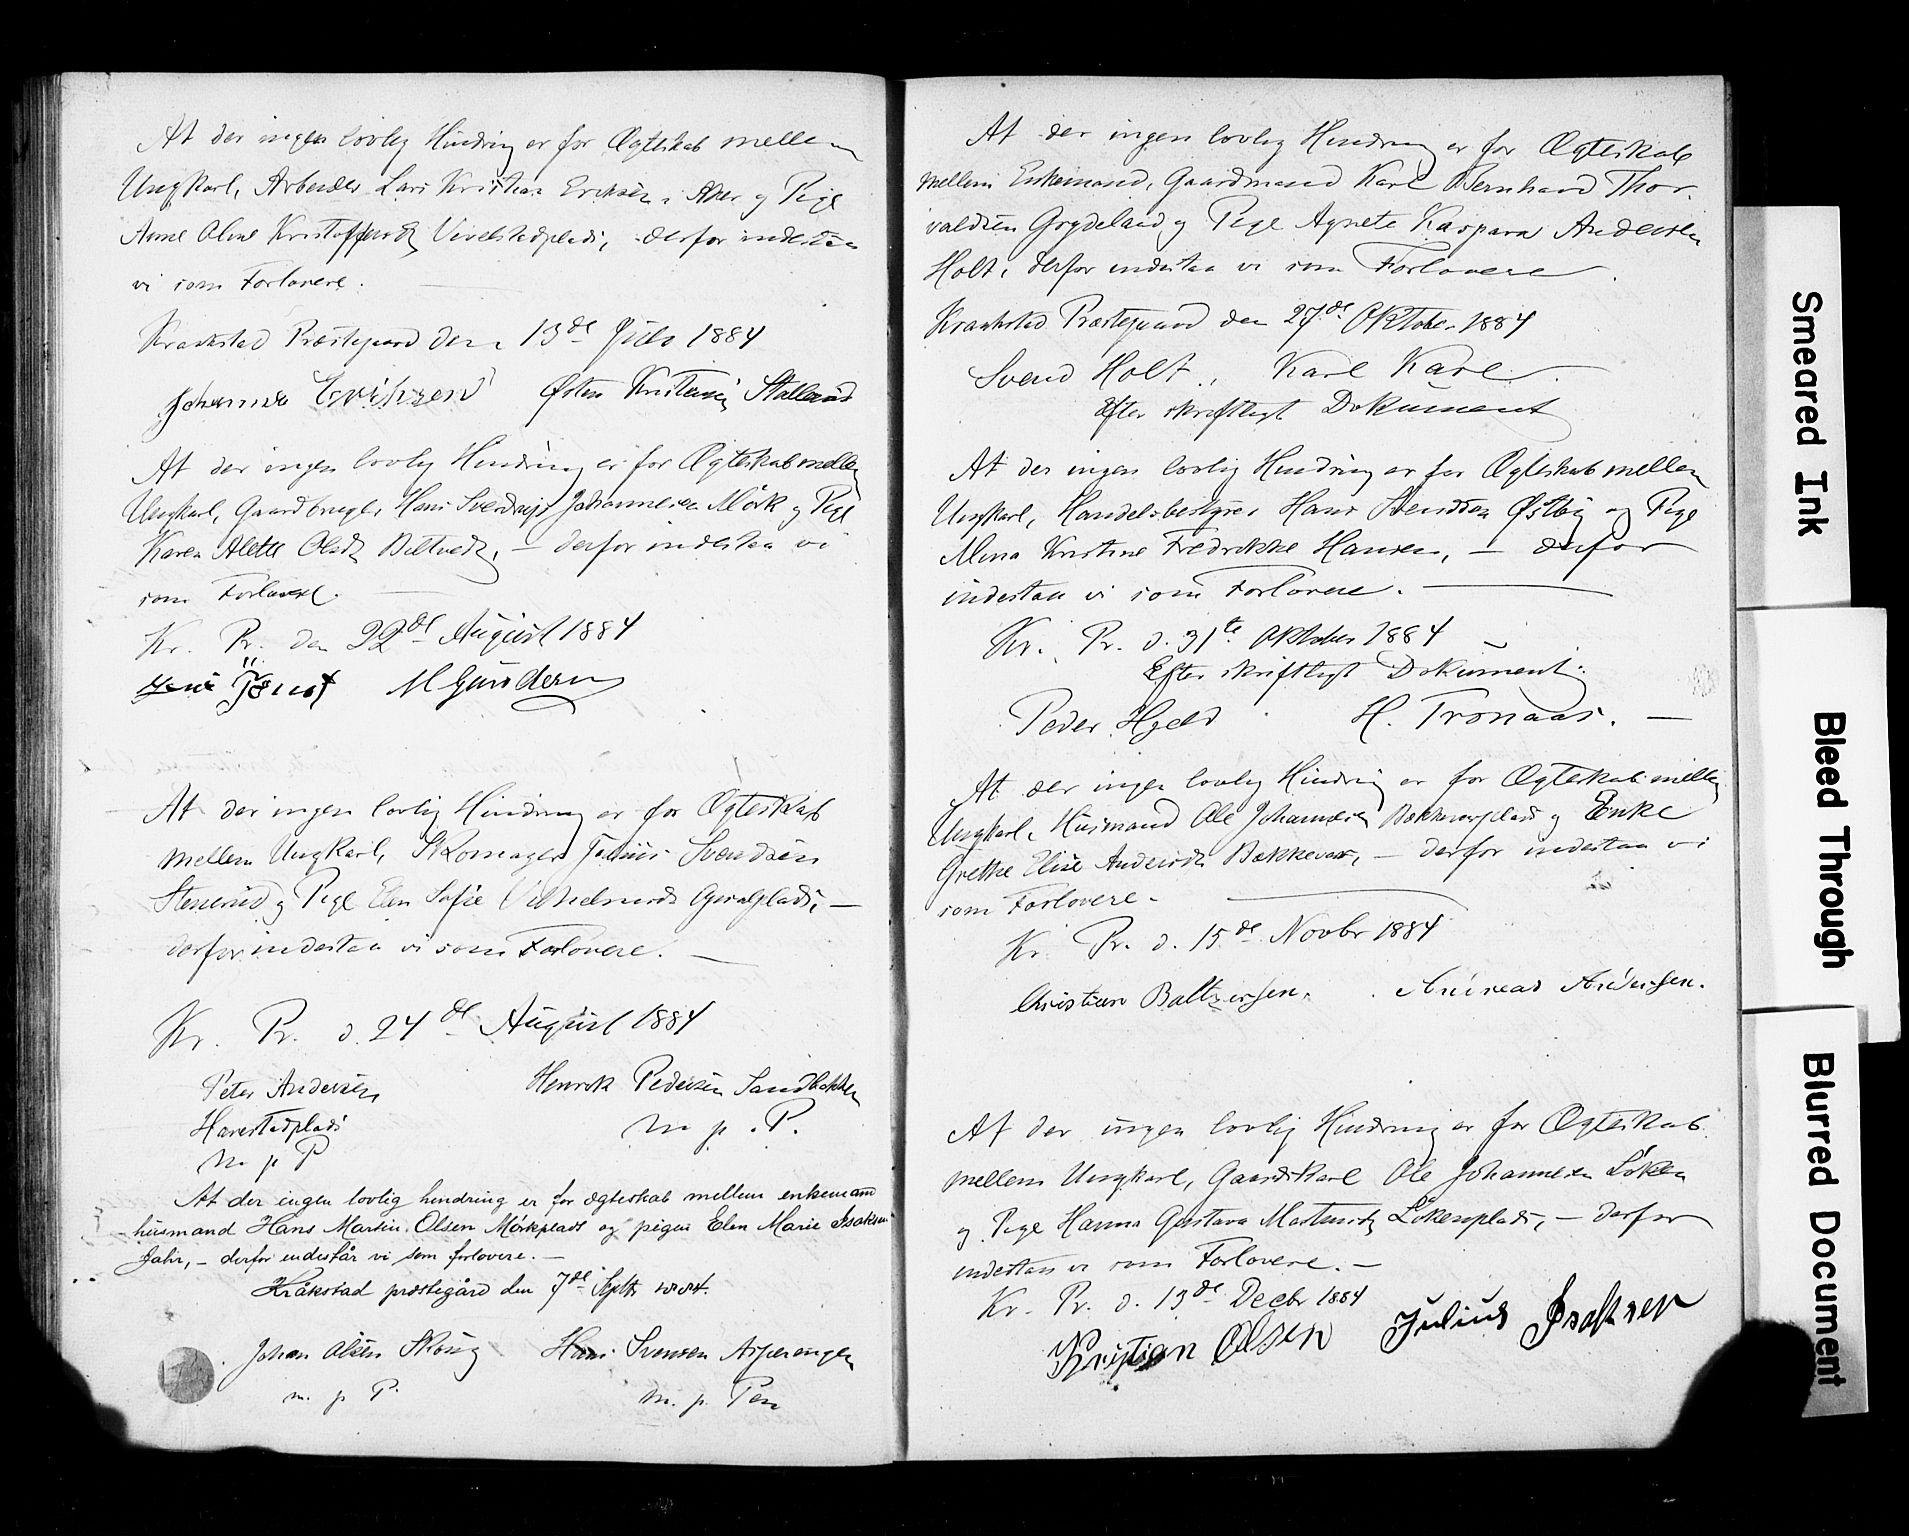 At der ingen lovlig Hindring er for Ægteskab mellem
Ungkarl, Arbeider Lars Kristian Eriksen, Aker og Pige
Anne Oline Kristoffersdr, derfor indestaa
vi som Forlovere.
Kraakstad Præstegaard den 13de Juli 1884
Johannes Eriksen Østen Kristensen
At der ingen lovlig Hindring er for Ægteskab mellem
Ungkarl, Gaardbruger Hans Sverdrup Johannesen Mörk og Pige
Karen Alette Olsdr, – derfor indestaa vi
som Forlovere.
Kr. Pr. den 22de August 1884
M Gundersen
At der ingen lovlig Hindring er for Ægteskab
mellem Ungkarl, Skomager Julius Svendsen
Stenerud og Pige Elen Sofie –
derfor indestaa vi som Forlovere. –
Kr. Pr. d. 24de August 1884
Peter Andersen Henrik Pedersen Sandbakken
Harestadplads m. p. P.
m p P
At der ingen lovlig hindring er for ægteskab mellem enkemand
husmand Hans Martin Olsen Mörkplads og pigen Elen Marie Isaksen
Jahr, – derfor indestår vi som forlovere. –
Kråkstad præstegård den 7de Septbr 1884.
Johan Olsen Skoug Hans Svensen Asperengen
m. p. P. m. p. Pen
At der ingen lovlig Hindring er for Ægteskab
mellem Enkemand, Gaardmand Karl Bernhard Thor-
valdsen Grydeland og Pige Agnete Kaspara Andersen
Holt, derfor indestaa vi som Forlovere.
Kraakstad Præstegaard den 27de Oktober 1884
Svend Holt, Karl Karl
Efter skriftligt Dokument
At der ingen lovlig Hindring er for Ægteskab mellem
Ungkarl, Handelsbestyrer Hans Svendsen Østby og Pige
Mina Kristine Fredrikke Hansen, – derfor
indestaa vi som Forlovere. –
Kr. Pr. d. 31te Oktober 1884
Efter skriftligt Dokument.
Peder Hjeld H. Tronaas. –
At der ingen lovlig Hindring er for Ægteskab mellem
Ungkarl, Husmand Ole Johannesen Bækkevarplads og Enke
Grethe Elise Andersdr Bækkevar, – derfor indestaa vi
som Forlovere.
Kr. Pr. d. 15de Novbr 1884
Christian Baltzersen. Andreas Andersen.
At der ingen lovlig Hindring er for Ægteskab
mellem Ungkarl, Gaardskarl Ole Johannesen Löken
og Pige Hanna Gustava Martinsdr Lökenplads, – derfor
indestaa vi som Forlovere. –
Kr. Pr. d. 13de Decbr 1884
Kristian Olsen Julius Isaksen
Smeared Ink
Bleed Through
Blurred Document